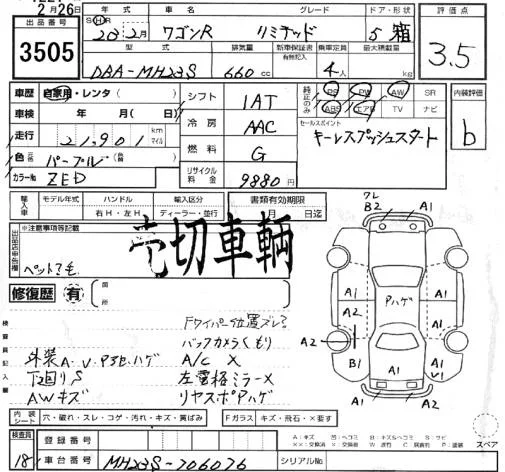 2月26日
出品番号 3505
年式 SH 20年2月 車名 ワゴンR グレード リミテッド ドア・形状 5 箱
型式 DBA-MH23S 排気量 660cc 新車保証書 有無記入 乗車定員 4人 最大積載量 kg
評価点 3.5
車歴 自家用・レンタ( )
車検 年 月( 日)
走行 21,901 km マイル
色 元色 パープル (替 )
カラーNo ZED
シフト IAT
冷房 AAC
燃料 G
リサイクル料金 9880円
純正のみ PS PW AW SR
ABS エアB TV ナビ
セールスポイント
キーレスプッシュスタート
内装評価 b
輸入車 モデル年式 ハンドル 右H・左H 輸入区分 ディーラー・並行
書類有効期限 月 日迄
※注意事項等記載
ペット毛
売切車輌
修復歴 有 箇所
検査員記入欄
Fワイパー位置ズレ
バックカメラくもり
外装A・V・Pヨゴレハゲ A/C X
下回りS 左電格ミラーX
AWキズ リヤスポPハゲ
フレ
B2 A1
A1
A1 A1
A2 Pハゲ
A2 A1
B1 A1
V1
A1
A2 A1
スペア
内装シート 穴・破れ・スレ・コゲ・汚れ・キズ・黄ばみ Fガラス キズ・飛石・×要す
検査員 18
登録番号
車台番号 MH23S-706076 シリアルNo